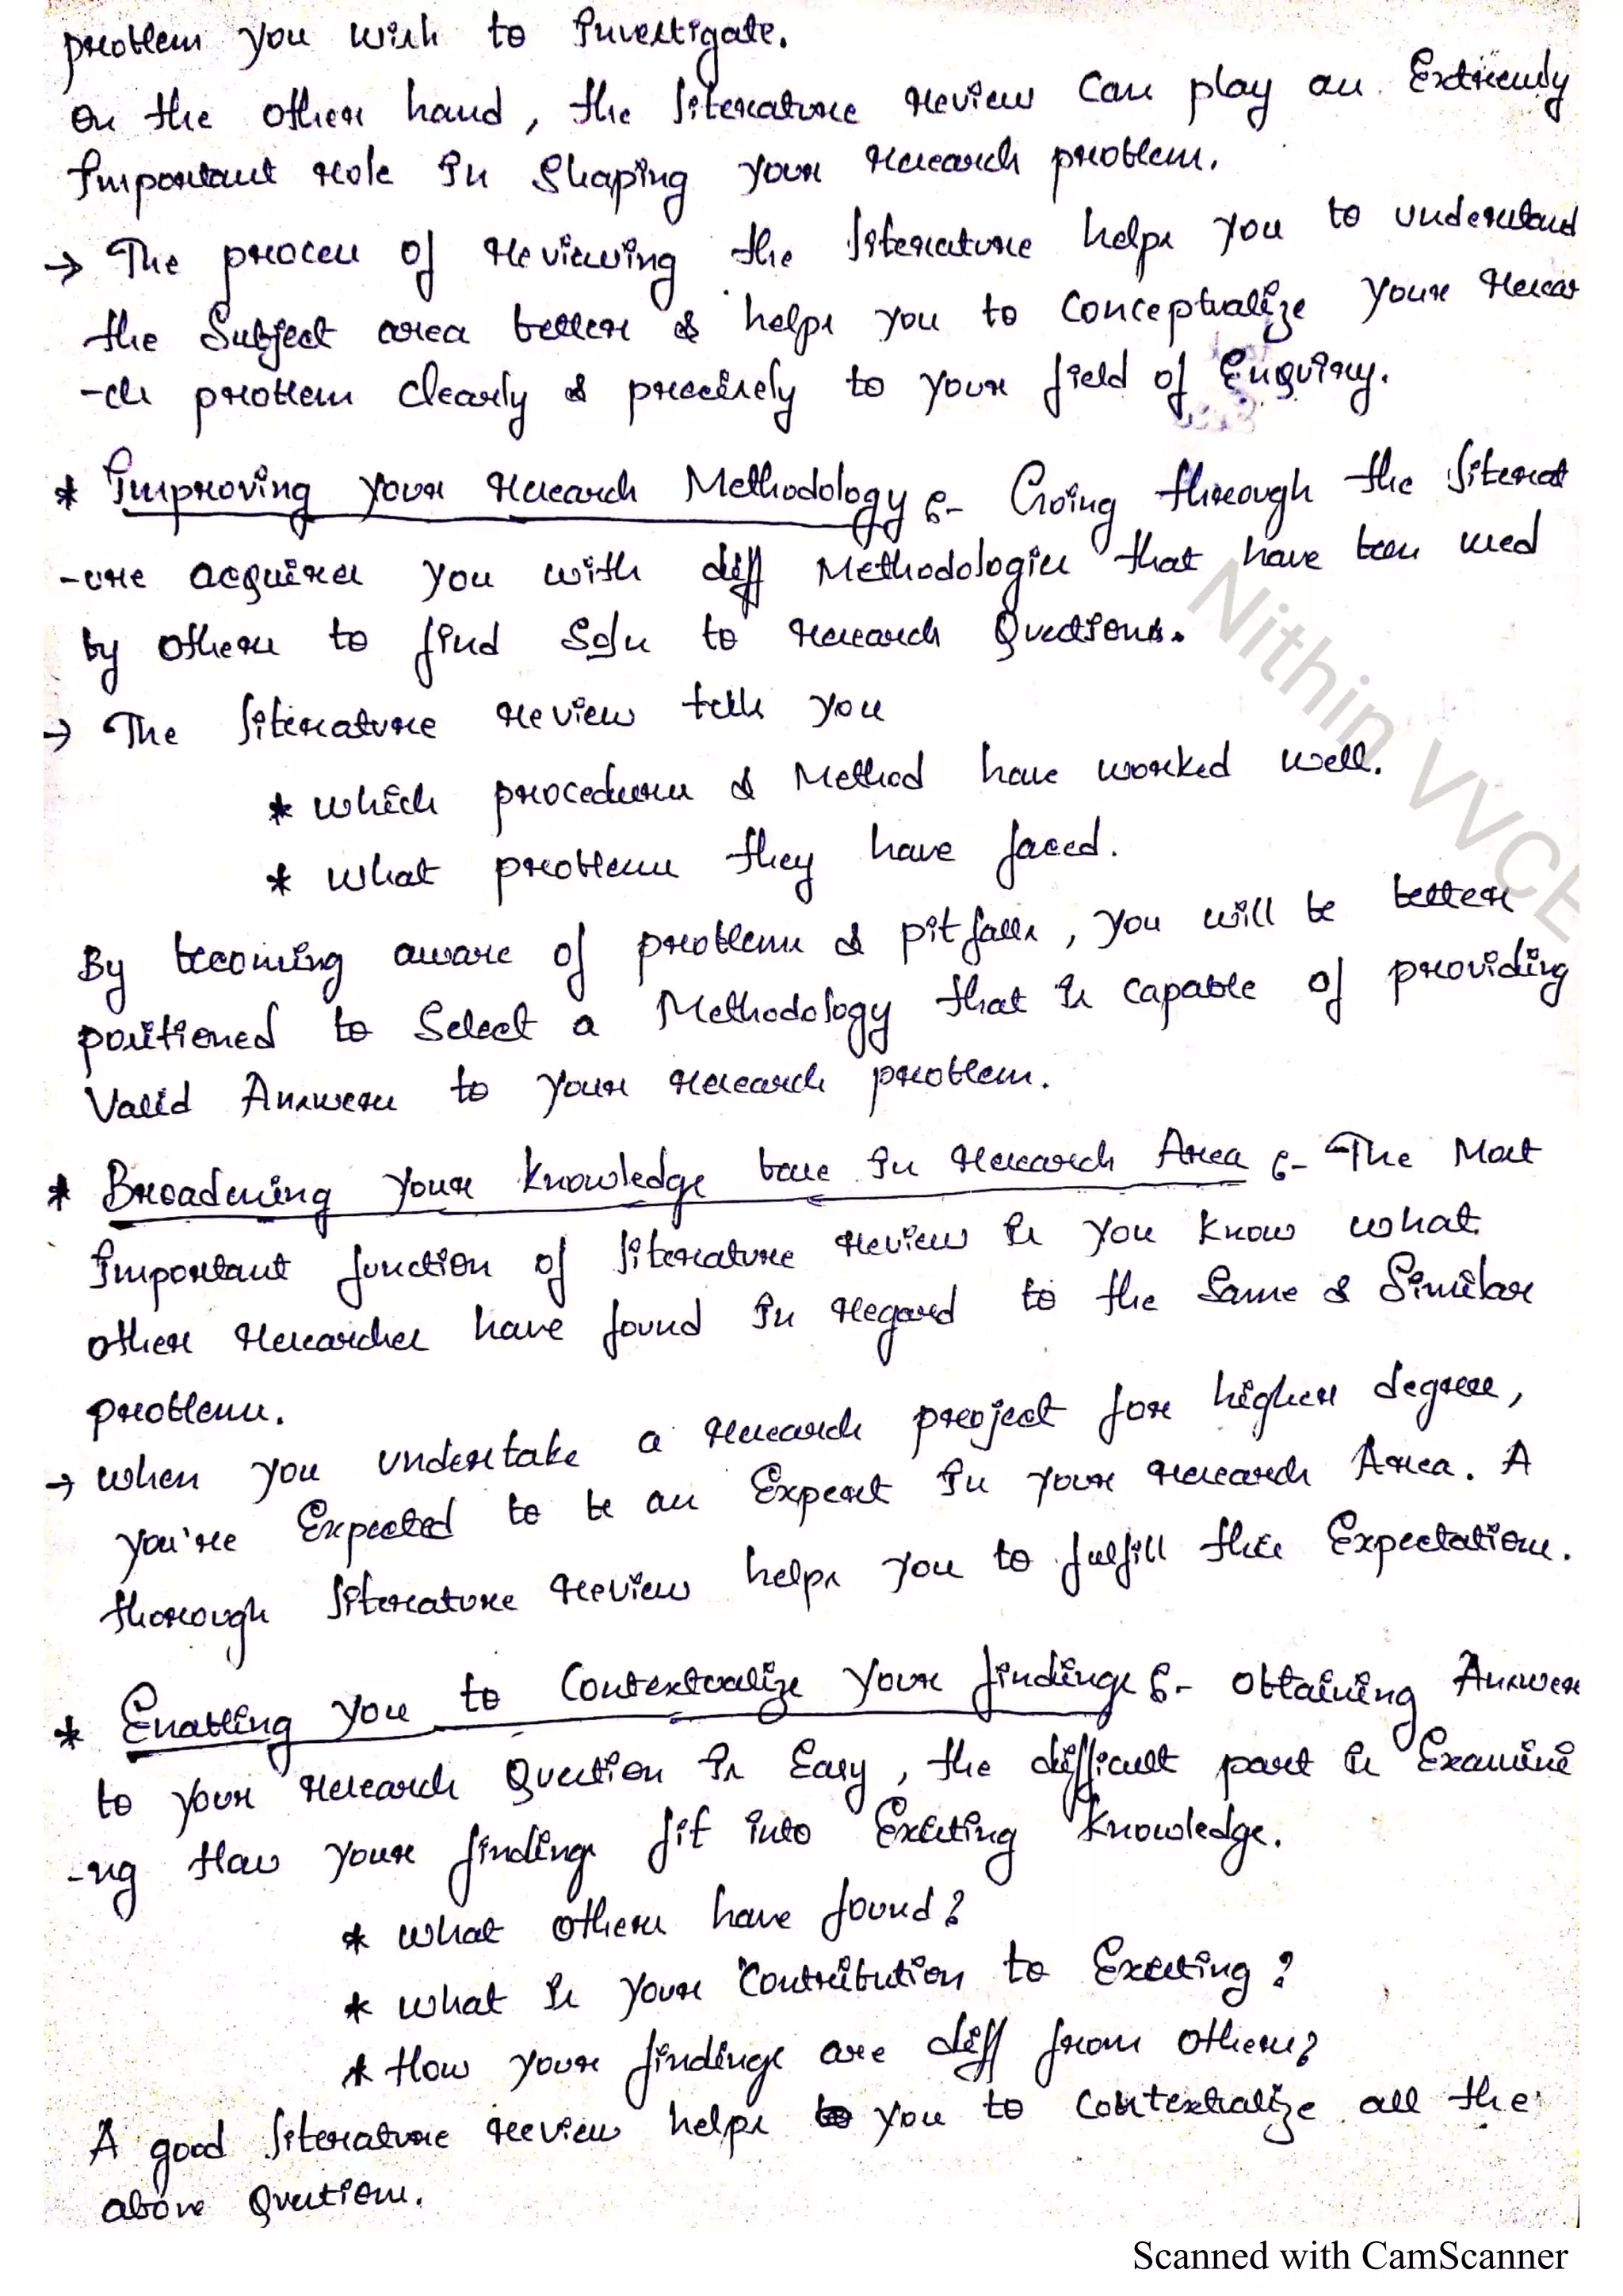 problem you wish to Investigate.
On the other hand, the literature review can play an Extremely
Important role In Shaping your research problem.
→ The process of reviewing the literature helps you to understand
the Subject area better & helps you to Conceptualize your resear
-ch problem clearly & precisely to your field of Enquiry.
* Improving your research Methodology :- Going through the literat
-ure acquires you with diff Methodologies that have been used
by others to find Soln to research Questions.
→ The literature review tells you
* which procedures & Method have worked well.
* what problems they have faced.
By becoming aware of problems & pitfalls, you will be better
positioned to Select a Methodology that is capable of providing
Valid Answers to your research problem.
* Broadening your knowledge base In research Area :- The Most
Important function of literature review is you know what
other researches have found In regard to the Same & Similar
problems.
→ when you undertake a research project for higher degree,
you're Expected to be an Expert In your research Area. A
thorough literature review helps you to fulfill this Expectations.
* Enabling you to Contextualize your findings :- Obtaining Answer
to your research Question Is Easy, the difficult part is Examini
-ng How your findings fit into Existing knowledge.
* what others have found?
* what is your Contribution to Existing?
* How your findings are diff from others?
A good literature review helps you to Contextualize all the
above Questions.
Nithin VVCE
Scanned with CamScanner